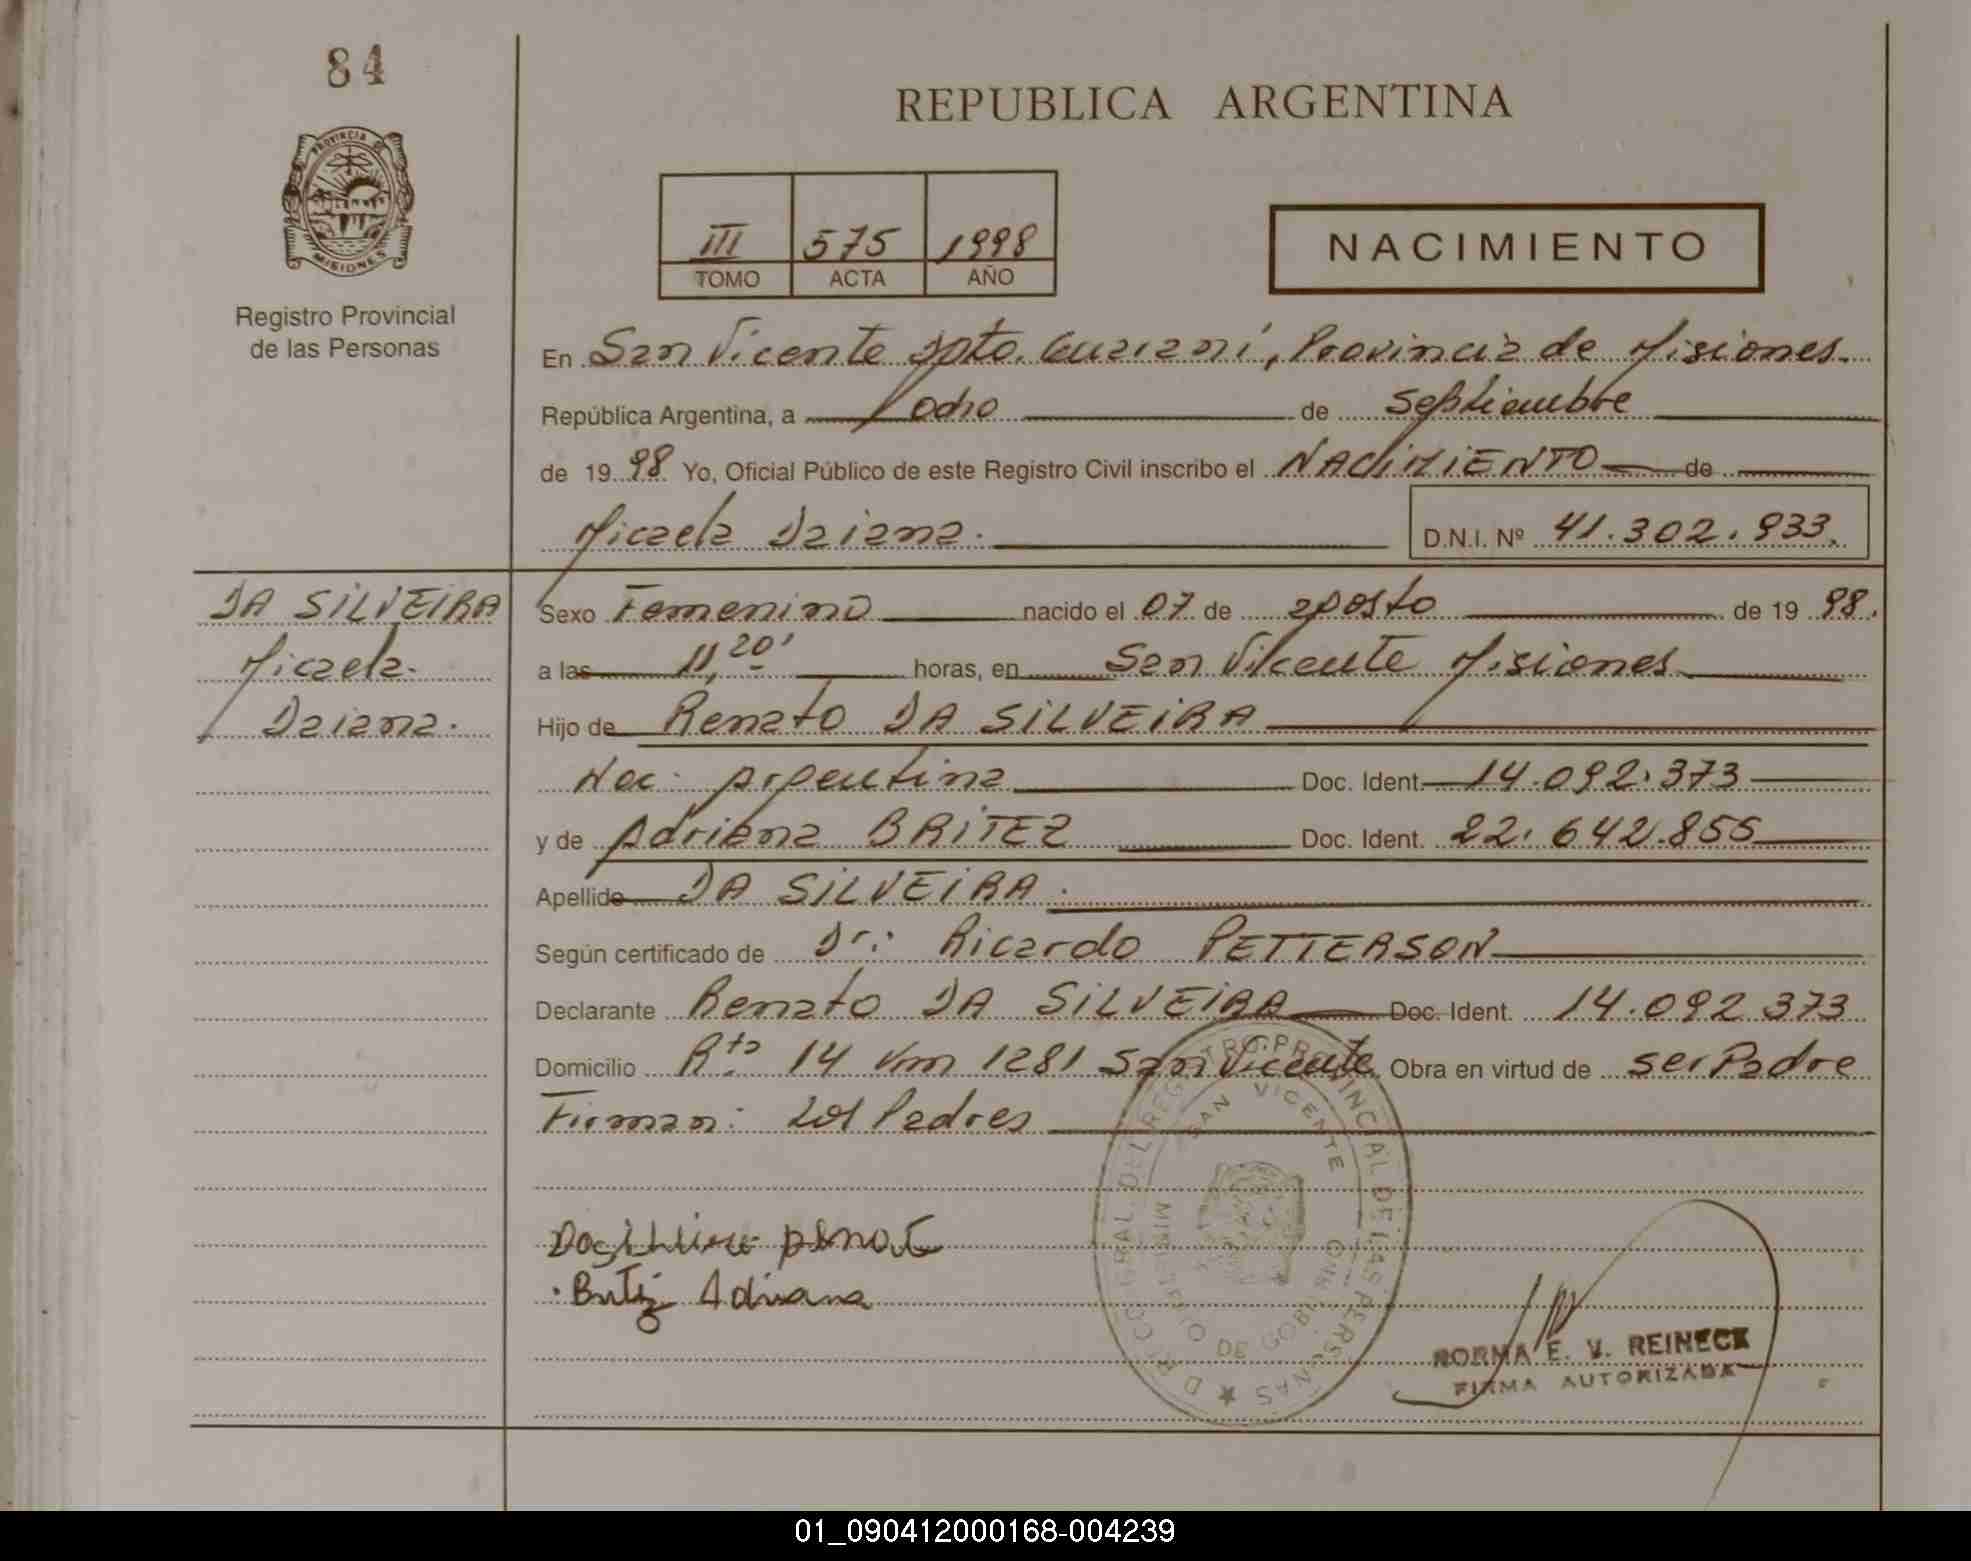 84
REPUBLICA ARGENTINA
PROVINCIA DE
MISIONES
Registro Provincial
de las Personas
III 575 1998
TOMO ACTA AÑO
NACIMIENTO
En San Vicente Dpto. Guaraní, Provincia de Misiones.
República Argentina, a ocho de Septiembre
de 1998 Yo, Oficial Público de este Registro Civil inscribo el NACIMIENTO de
Micaela Daiana.
D.N.I. Nº 41.302.933.
DA SILVEIRA
Micaela
Daiana.
Sexo Femenino nacido el 07 de agosto de 1998.
a las 11,20' horas, en San Vicente Misiones
Hijo de Renato DA SILVEIRA
Nac: Argentina Doc. Ident. 14.092.373
y de Adriana BRITEZ Doc. Ident. 22.642.855
Apellido DA SILVEIRA.
Según certificado de Dr.: Ricardo PETTERSON
Declarante Renato DA SILVEIRA Doc. Ident. 14.092.373
Domicilio Rta 14 Km 1281 San Vicente Obra en virtud de ser Padre
Firman: Los Padres
Adriana
DEL REGISTRO PROVINCIAL DE LAS PERSONAS
SAN VICENTE
MINISTERIO DE GOBIERNO
NORMA E. V. REINECK
FIRMA AUTORIZADA
01_090412000168-004239